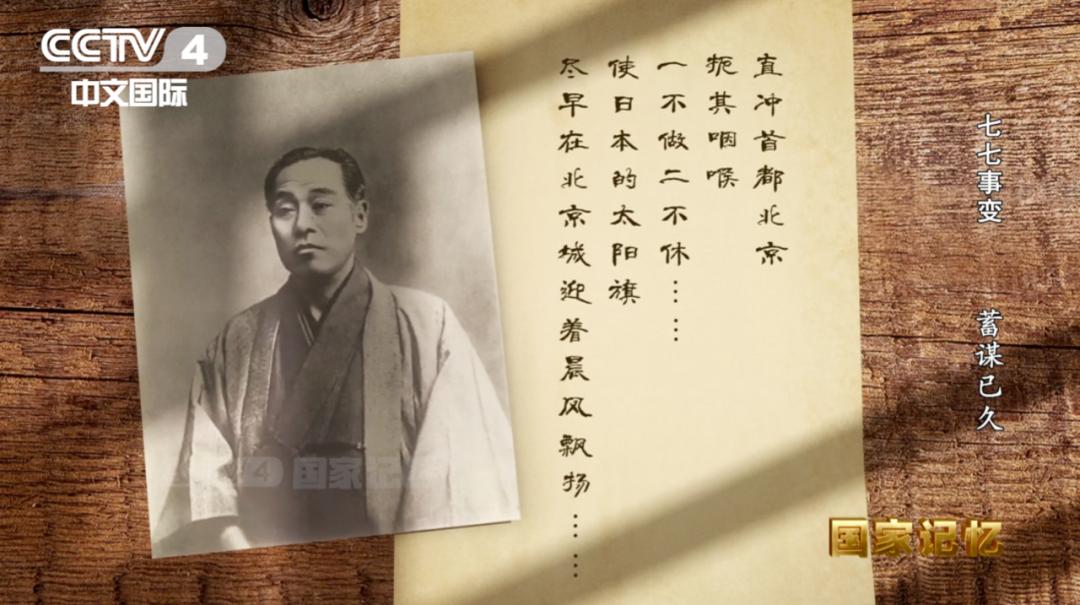 CCTV 4
中文国际
直冲首都北京
扼其咽喉
一不做二不休……
使日本的太阳旗
尽早在北京城迎着晨风飘扬……
七七事变 蓄谋已久
4 国家记
国家记忆